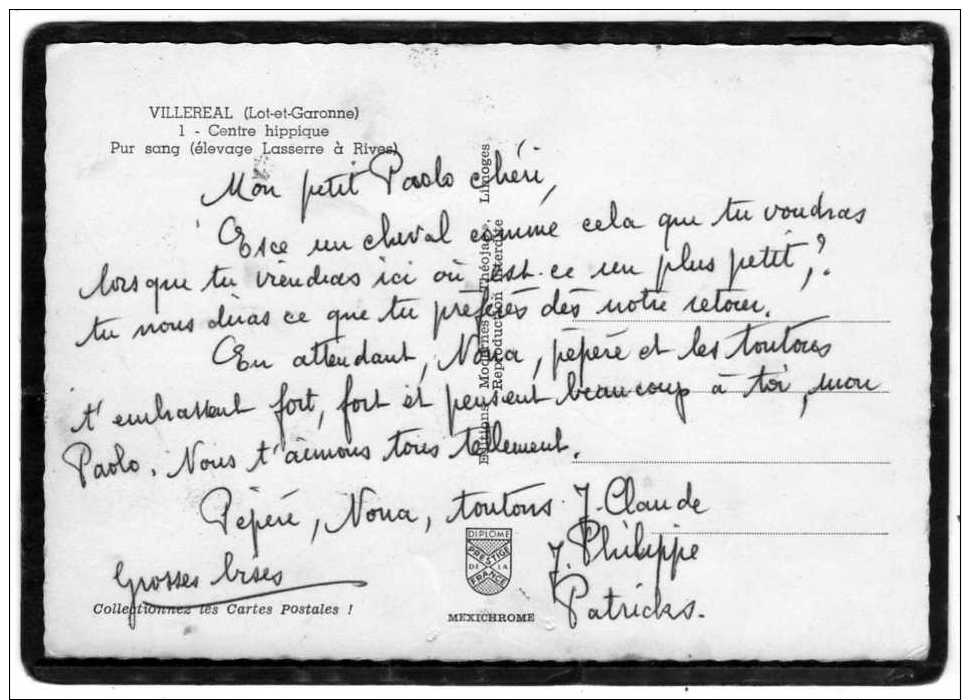 VILLEREAL (Lot-et-Garonne)
1 - Centre hippique
Pur sang (élevage Lasserre à Rives)
Mon petit Paolo chéri,
Esce un cheval comme cela que tu voudras
lorsque tu viendras ici où est-ce un plus petit,?
tu nous diras ce que tu préfères dès notre retour.
En attendant, Nona, pépéré et les toutous
t'embrassent fort, fort et pensent beaucoup à toi, mon
Paolo. Nous t'aimons tous tellement.
Pépéré, Nona, toutous J. Claude
J. Philippe
Patricks.
Grosses bises
Collectionnez les Cartes Postales !
Editions Modernes Théojac, Limoges
Reproduction interdite
DIPLOME
PRESTIGE
DE LA
FRANCE
MEXICHROME